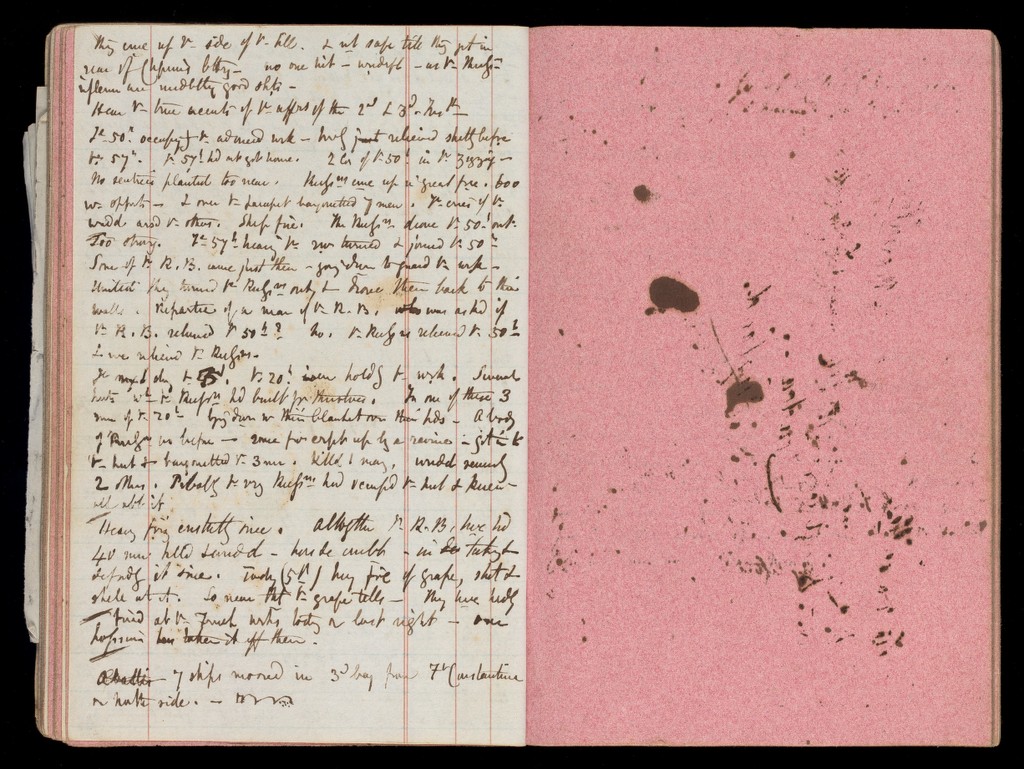 They come up ye side of ye hill. & not safe till they get in
rear of Chapman's btty — no one hit — wonderful — as ye Russn
are undoubtedly good shots —
Hear ye true accounts of ye affairs of the 2d & 3d.
Ye 50th occupying ye advanced work — having just relieved shortly before
ye 57th. Ye 57th had not got home. 2 Cos of ye 50th in ye zigzag —
No sentries planted too near. Russns came up in great force. 600
we opposite — & over ye parapet bayonetted 7 men. Ye cries of ye
wounded arousd ye others. Sharp fire. The Russns drove ye 50th out.
Too strong. Ye 57th hearing ye row turned & joined ye 50th
Some of ye R.B. came just then — going down to guard ye work —
United they turned ye Russns out, & drove them back to their
walls. Repartee of a man of ye R.B. who was asked if
ye R.B. relieved ye 50th? No. Ye Russns relieved ye 50th
& we relieved ye Russns —
Ye next day ye 3d. Ye 20th were holdg ye work. Several
huts wh ye Russns had built for themselves. In one of these 3
men of ye 20th lying down wh their blanket over their heads — A body
of Russns as before — some few crept up by a ravine — got in to
ye hut & bayonetted ye 3 men. Killed 1 man, wounded severely
2 others. Probably ye very Russns had occupied ye hut & knew
all abt it
Heavy firing constantly since. Altogether ye R.B. have had
40 men killed & wounded — hors de combat — in taking &
defendg it since. Today (5th) heavy fire of grape, shot &
shells at it. So near that ye grape tells — They have hardly
fired at ye French works today or last night — one
has taken it off them.
7 ships moored in 3d bay from Ft Constantine
on north side. —